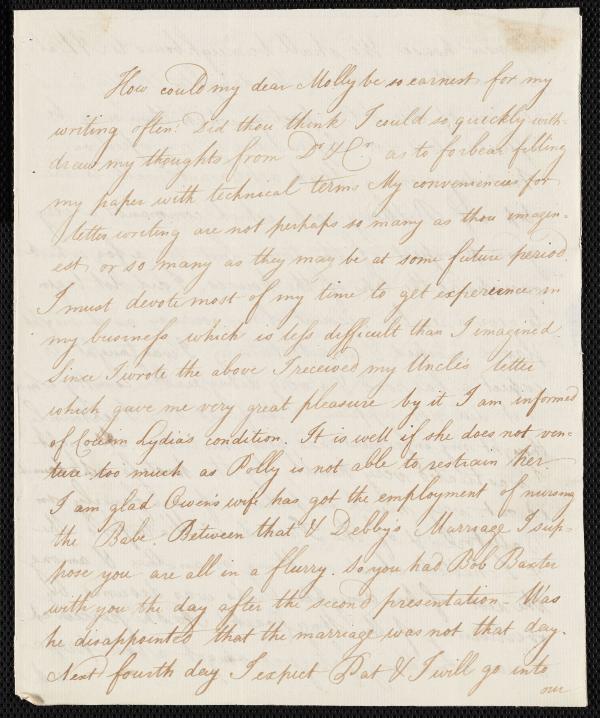 How could my dear Molly be so earnest for my
writing often? Did thou think I could so quickly with-
draw my thoughts from Dr & Cr as to forbear filling
my paper with technical terms My conveniencies for
letter writing are not perhaps so many as thou imagin-
est, or so many as they may be at some future period
I must devote most of my time to get experience in
my business which is less difficult than I imagined
Since I wrote the above I received my Uncle's letter
which gave me very great pleasure by it I am informed
of Cousin Lydia's condition. It is well if she does not ven-
ture too much as Polly is not able to restrain her
I am glad Owen's wife has got the employment of nursing
the Babe Between that & Debby's Marriage I sup-
pose you are all in a flurry. So you had Bob Baxter
with you the day after the second presentation - Was
he disappointed that the marriage was not that day.
Next fourth day I expect Pat & I will go into
our